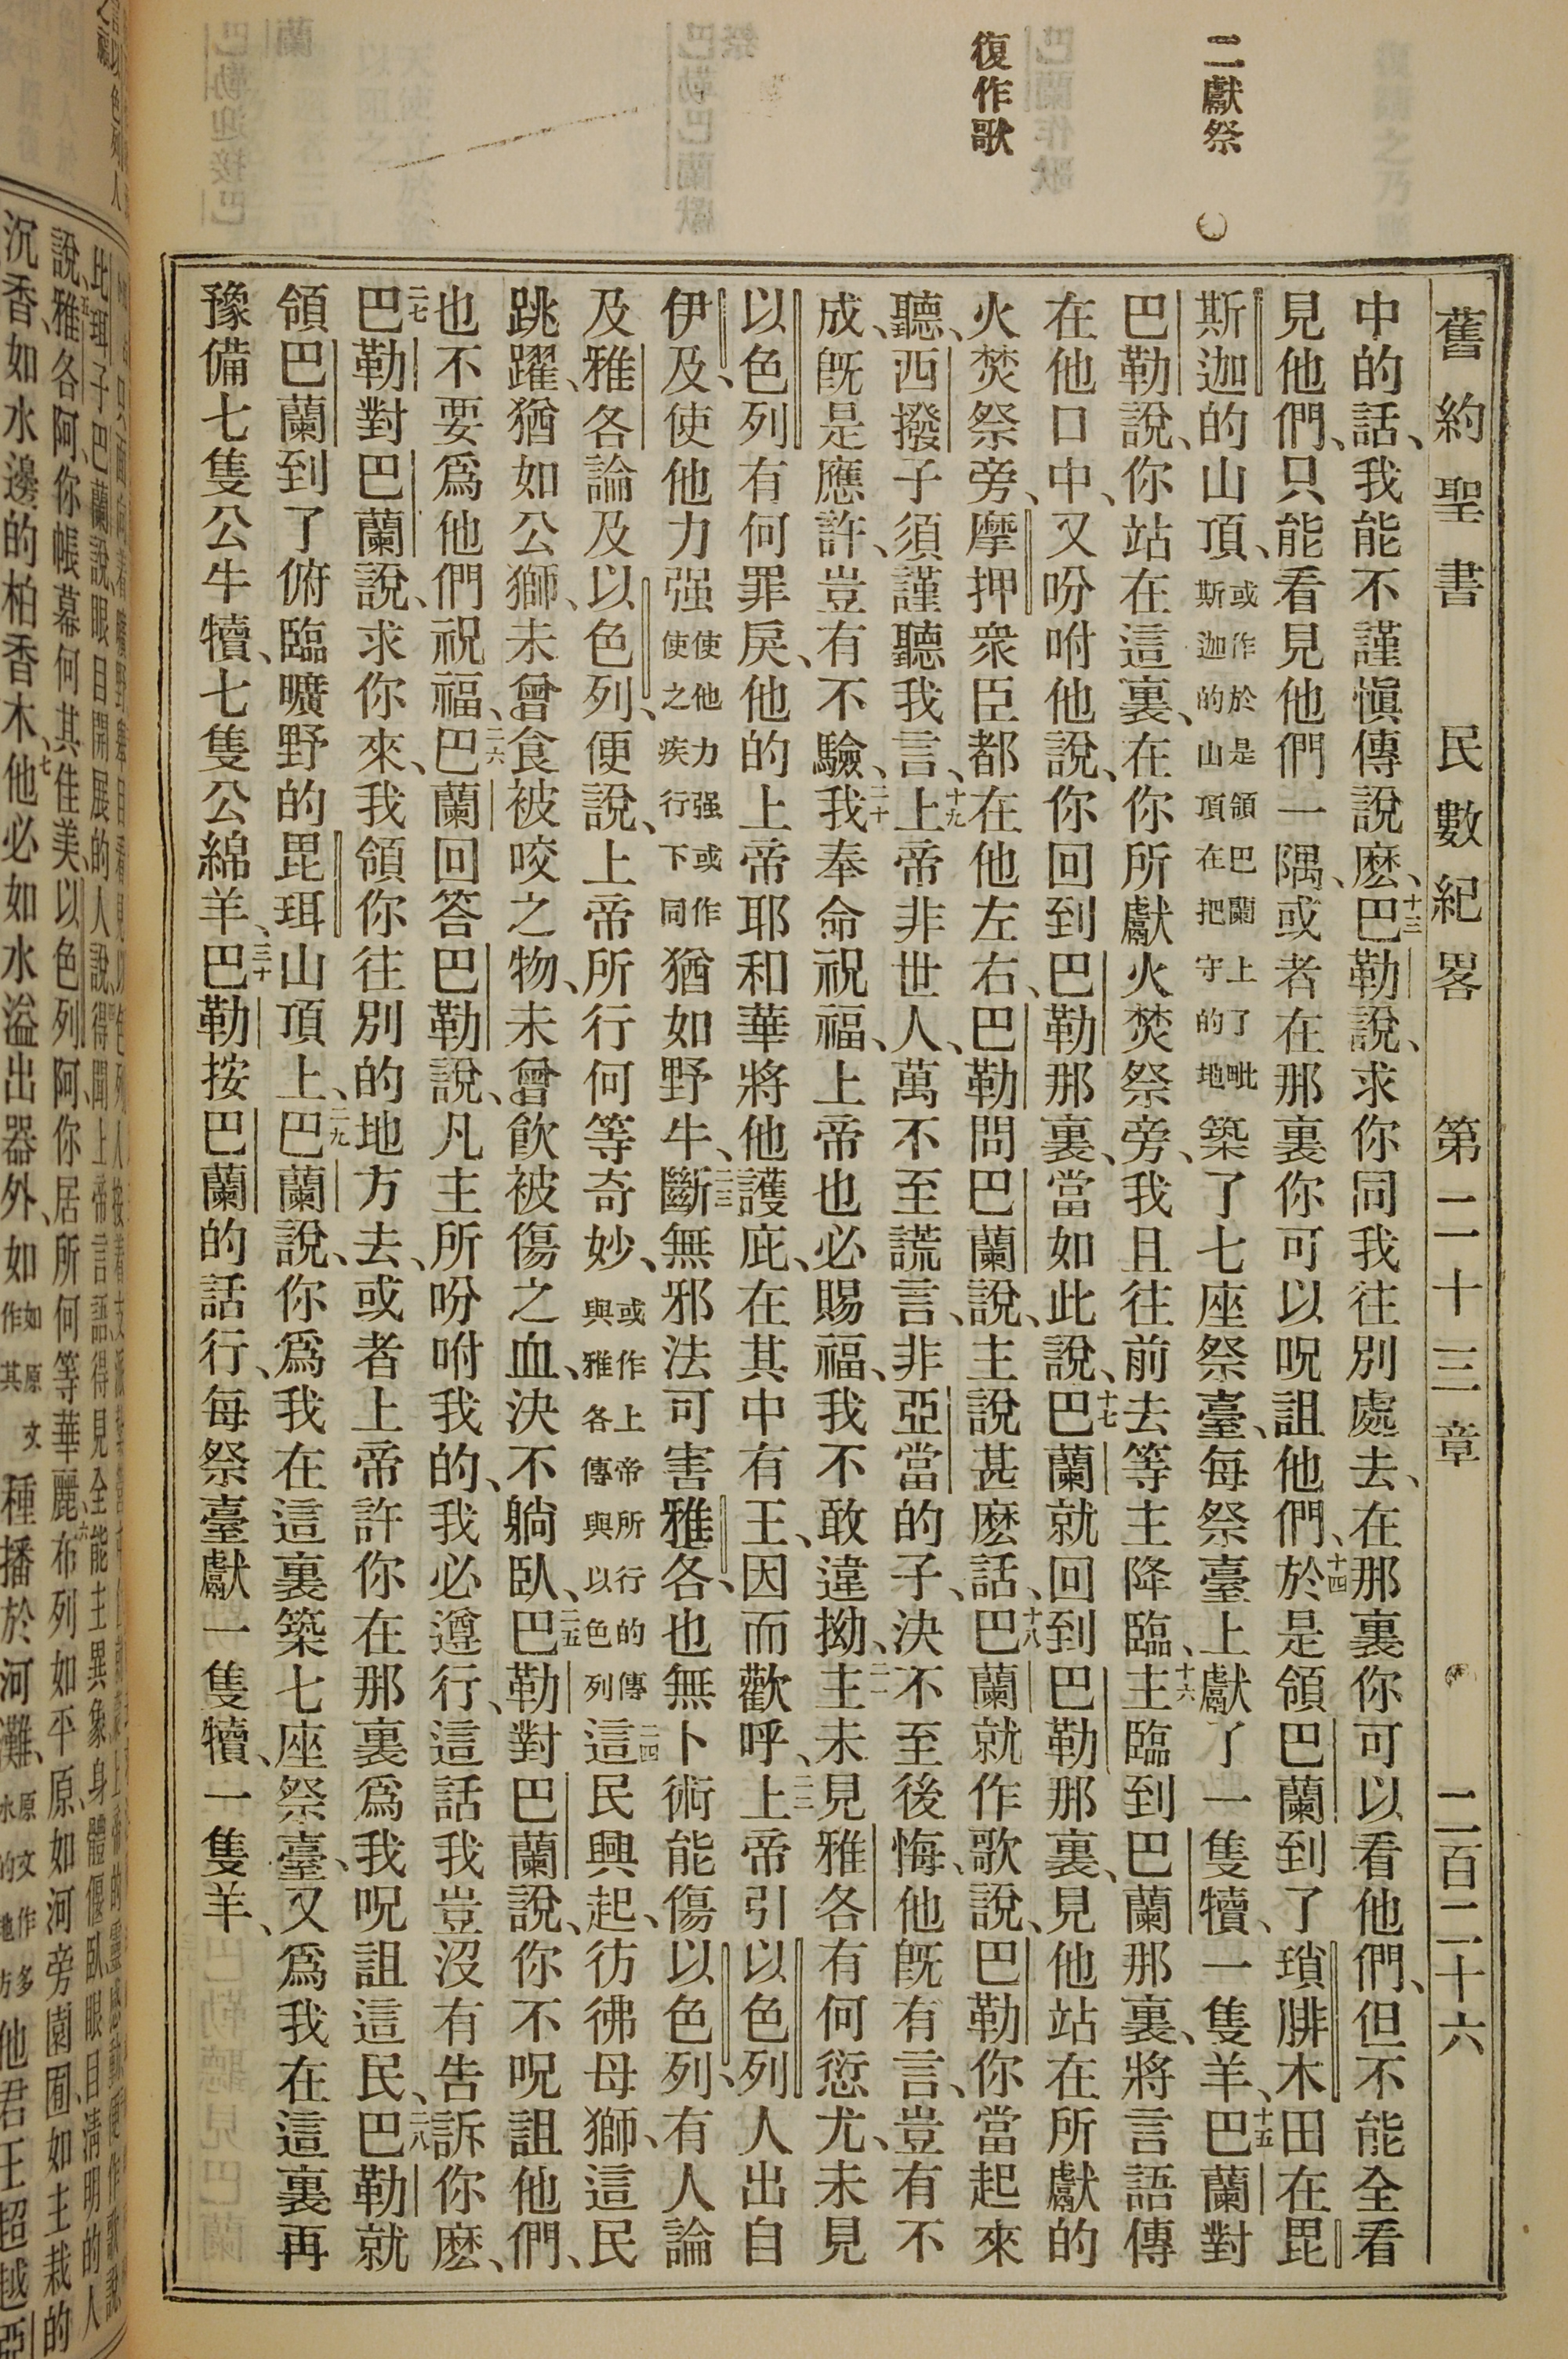 二獻祭
復作歌
舊約聖書 民數紀畧 第二十三章 二百二十六
中的話、我能不謹愼傳說麽、十三巴勒說、求你同我往別處去、在那裏你可以看他們、但不能全看
見他們、只能看見他們一隅、或者在那裏你可以呪詛他們、十四於是領巴蘭到了瑣腓木田在毘
斯迦的山頂、或作於是領巴蘭上了毗斯迦的山頂在把守的地築了七座祭臺、每祭臺上獻了一隻犢、一隻羊、十五巴蘭對
巴勒說、你站在這裏、在你所獻火焚祭旁、我且往前去等主降臨、十六主臨到巴蘭那裏、將言語傳
在他口中、又吩咐他說、你回到巴勒那裏、當如此說、十七巴蘭就回到巴勒那裏、見他站在所獻的
火焚祭旁、摩押衆臣都在他左右、巴勒問巴蘭說、主說甚麽話、十八巴蘭就作歌說、巴勒你當起來
聽、西撥子須謹聽我言、十九上帝非世人、萬不至謊言、非亞當的子、決不至後悔、他旣有言、豈有不
成、旣是應許、豈有不驗、二十我奉命祝福、上帝也必賜福、我不敢違拗、二一主未見雅各有何愆尤、未見
以色列有何罪戾、他的上帝耶和華將他護庇、在其中有王、因而歡呼、二二上帝引以色列人出自
伊及、使他力强使他力强或作使之疾行下同猶如野牛、二三斷無邪法可害雅各、也無卜術能傷以色列、有人論
及雅各論及以色列、便說、上帝所行何等奇妙、或作上帝所行的傳與雅各傳與以色列二四這民興起、彷彿母獅、這民
跳躍、猶如公獅、未曾食被咬之物、未曾飮被傷之血、決不躺臥、二五巴勒對巴蘭說、你不呪詛他們、
也不要爲他們祝福、二六巴蘭回答巴勒說、凡主所吩咐我的、我必遵行、這話我豈沒有告訴你麽、
二七巴勒對巴蘭說、求你來、我領你往別的地方去、或者上帝許你在那裏爲我呪詛這民、二八巴勒就
領巴蘭到了俯臨曠野的毘珥山頂上、二九巴蘭說、你爲我在這裏築七座祭臺、又爲我在這裏再
豫備七隻公牛犢、七隻公綿羊、三十巴勒按巴蘭的話行、每祭臺獻一隻犢、一隻羊、
說、雅各阿、你帳幕何其佳美、以色列阿、你居所何等華麗、六布列如平原、如河旁園囿、如主栽的
沉香、如水邊的柏香木、七他必如水溢出器外、如如原文作其種播於河灘、原文作多水的地方他君王超越亞